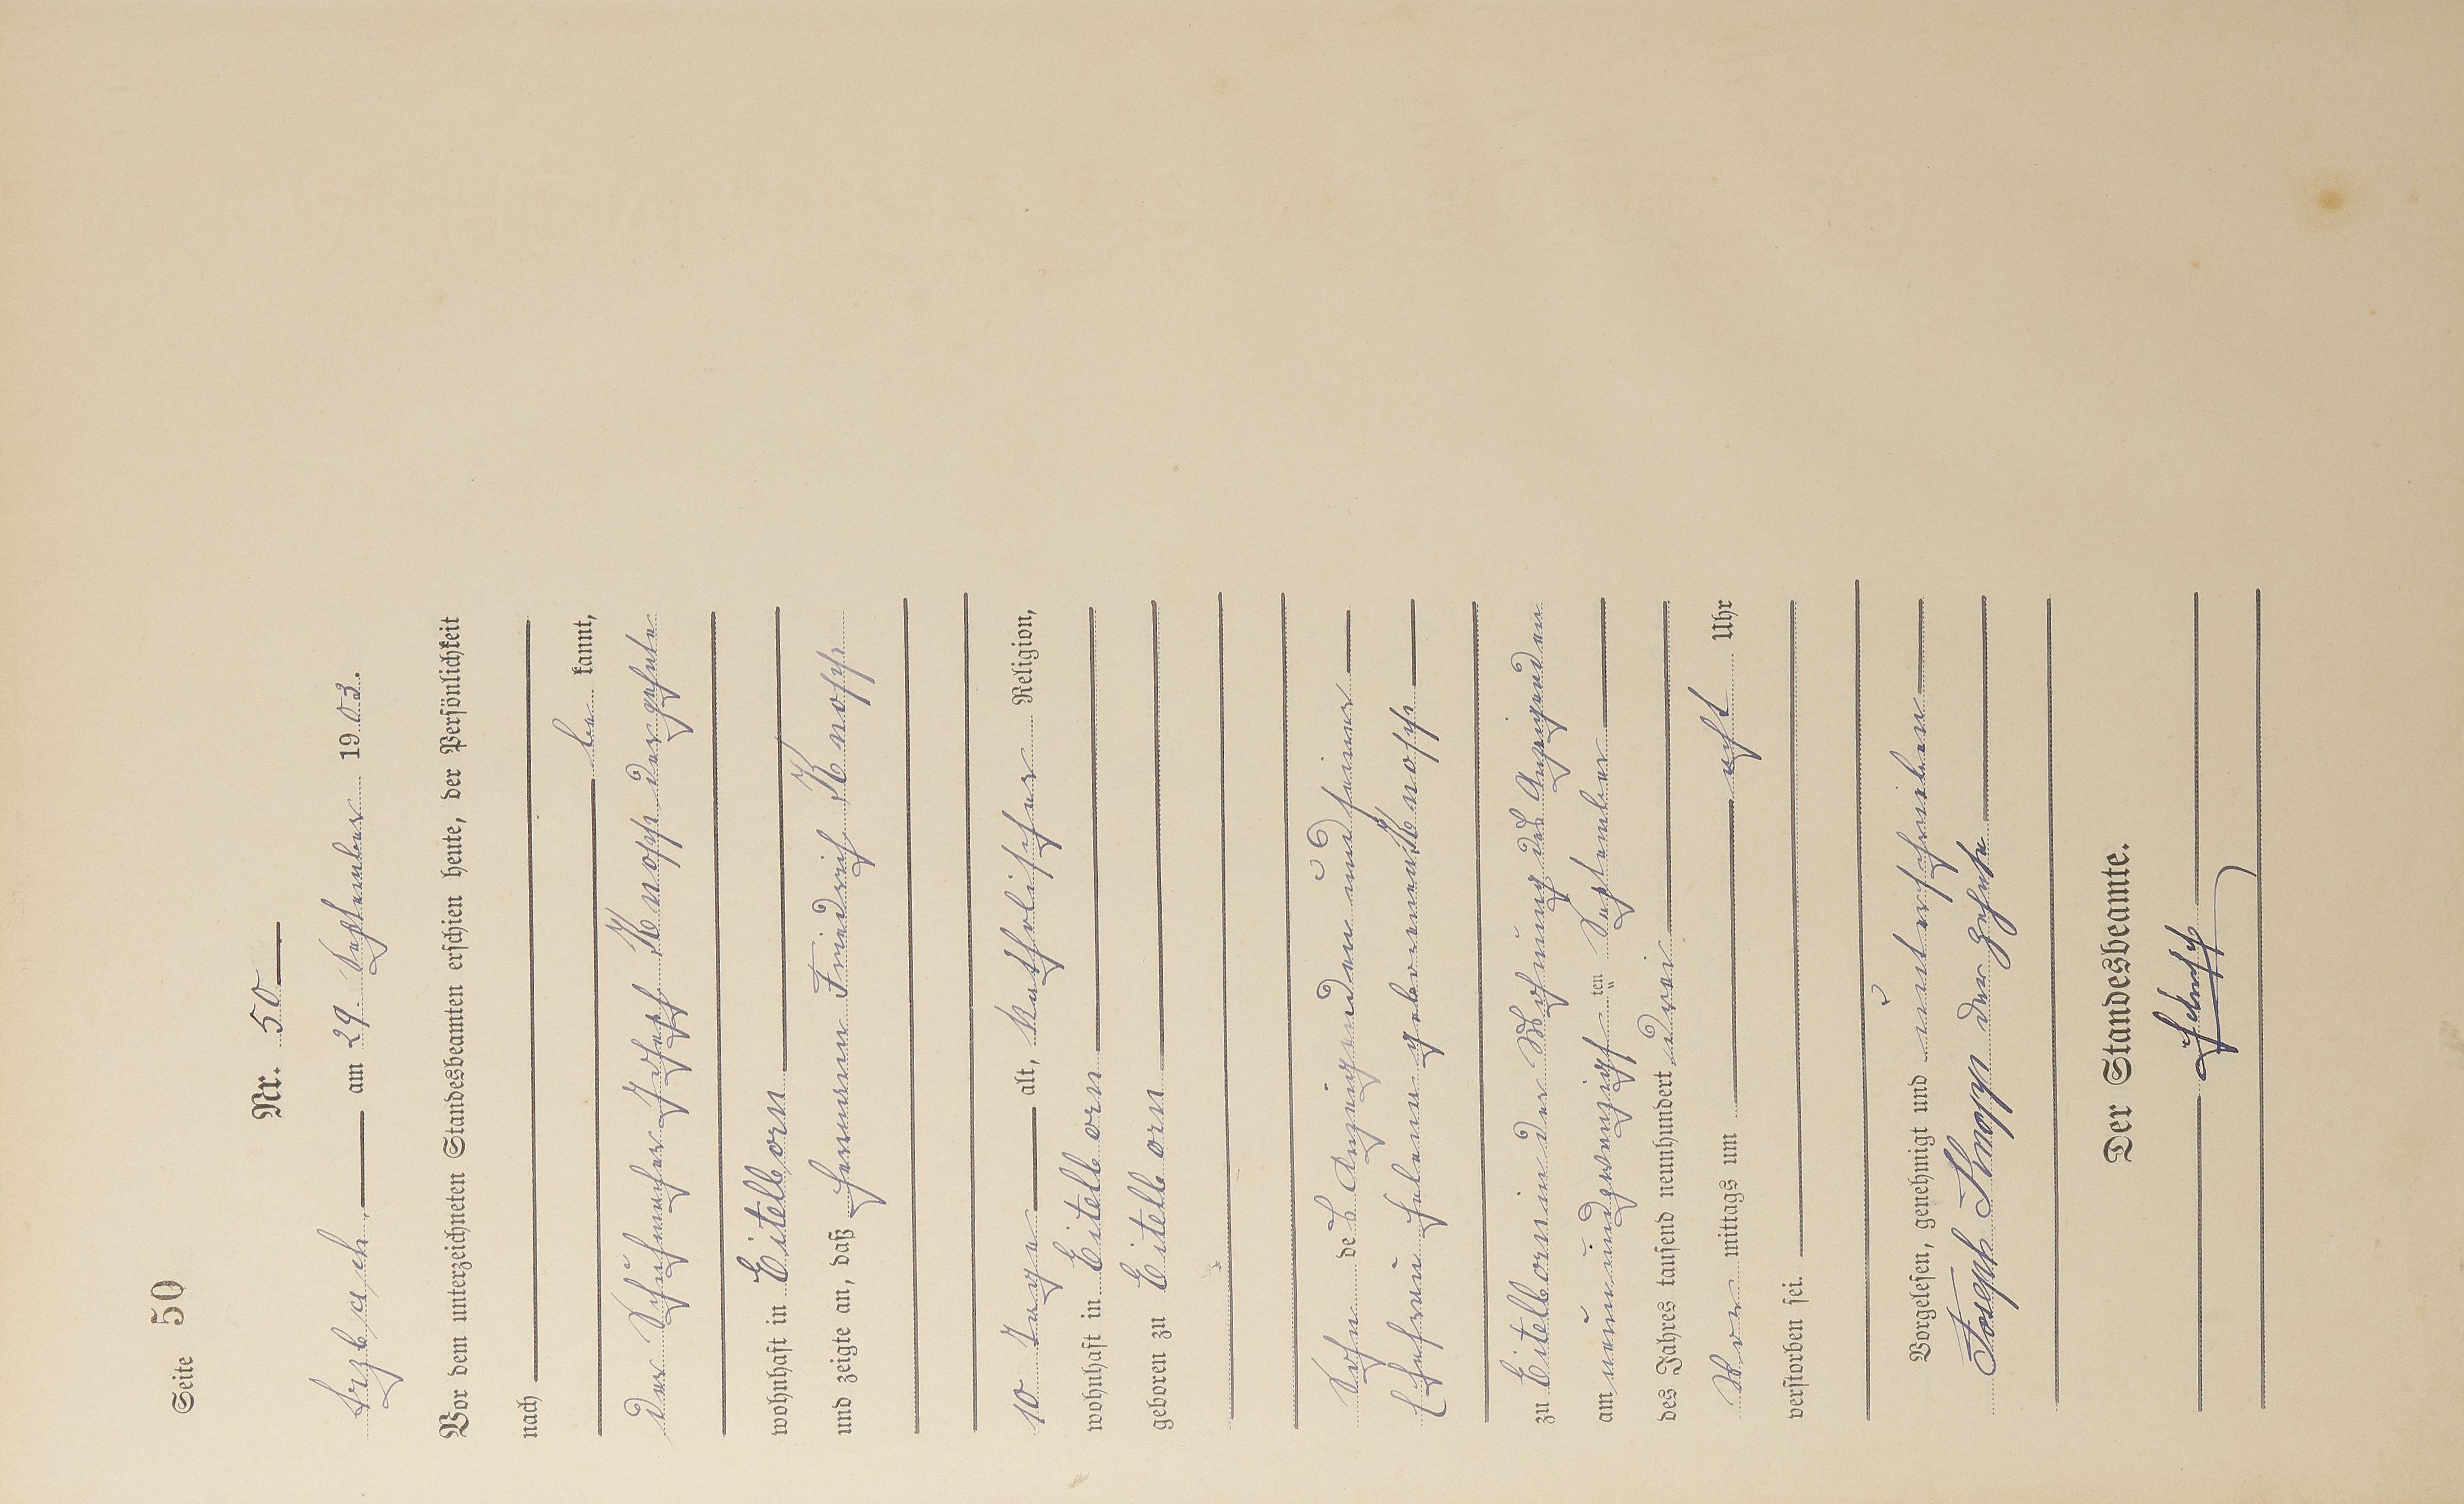 Seite 50
Nr. 50
Arzbach, am 29. September 1903.
Vor dem unterzeichneten Standesbeamten erschien heute, der Persönlichkeit
nach
be kannt,
der Schuhmacher Joseph Knopp der zehnte
wohnhaft in Eitelborn
und zeigte an, daß Hermann Friedrich Knopp
10 Tage alt, katholischer Religion,
wohnhaft in Eitelborn
geboren zu Eitelborn
Sohn des Anzeigenden und seiner
Ehefrau Helena geborenen Knopp
zu Eitelborn in der Wohnung des Anzeigenden
am neunundzwanzigsten September
des Jahres tausend neunhundert drei
Vor mittags um acht Uhr
verstorben sei.
Vorgelesen, genehmigt und unterschrieben
Joseph Knopp der Zehnte
Der Standesbeamte.